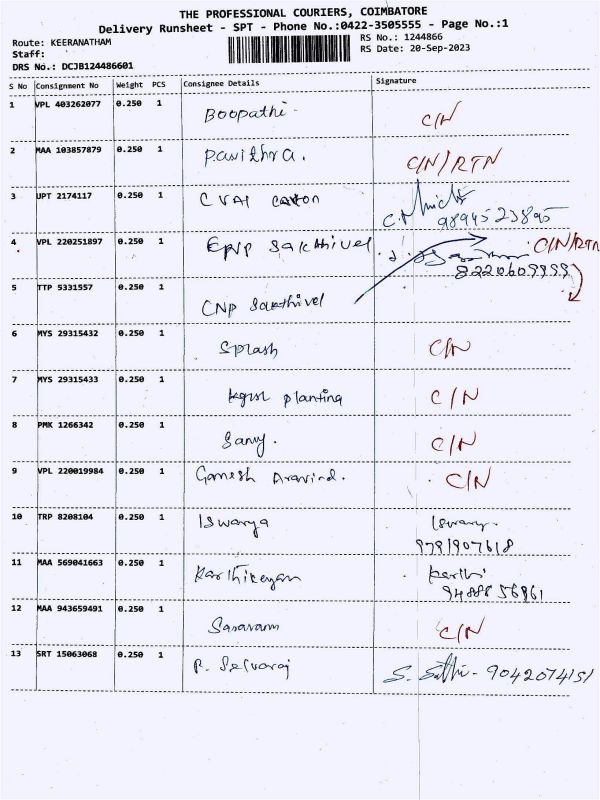 THE PROFESSIONAL COURIERS, COIMBATORE
Delivery Runsheet - SPT - Phone No.:0422-3505555 - Page No.:1
Route: KEERANATHAM RS No.: 1244866
Staff: RS Date: 20-Sep-2023
DRS No.: DCJB124486601
S No Consignment No Weight PCS Consignee Details Signature
1 VPL 403262077 0.250 1 Boopathi C/N
2 MAA 103857879 0.250 1 Pavithra. C/N/RTN
3 UPT 2174117 0.250 1 9894523895
4 VPL 220251897 0.250 1 Sakthivel C/N/RTN
8220609999
5 TTP 5331557 0.250 1 CNP Sakthivel
6 MYS 29315432 0.250 1 Splash C/N
7 MYS 29315433 0.250 1 planting C/N
8 PMK 1266342 0.250 1 C/N
9 VPL 220019984 0.250 1 Ganesh Aravind. C/N
10 TRP 8208104 0.250 1 Iswarya Iswary.
9791907618
11 MAA 569041663 0.250 1 Karthikeyan Karthi
9488856861
12 MAA 943659491 0.250 1 C/N
13 SRT 15063068 0.250 1 P. Selvaraj S. - 9042074151